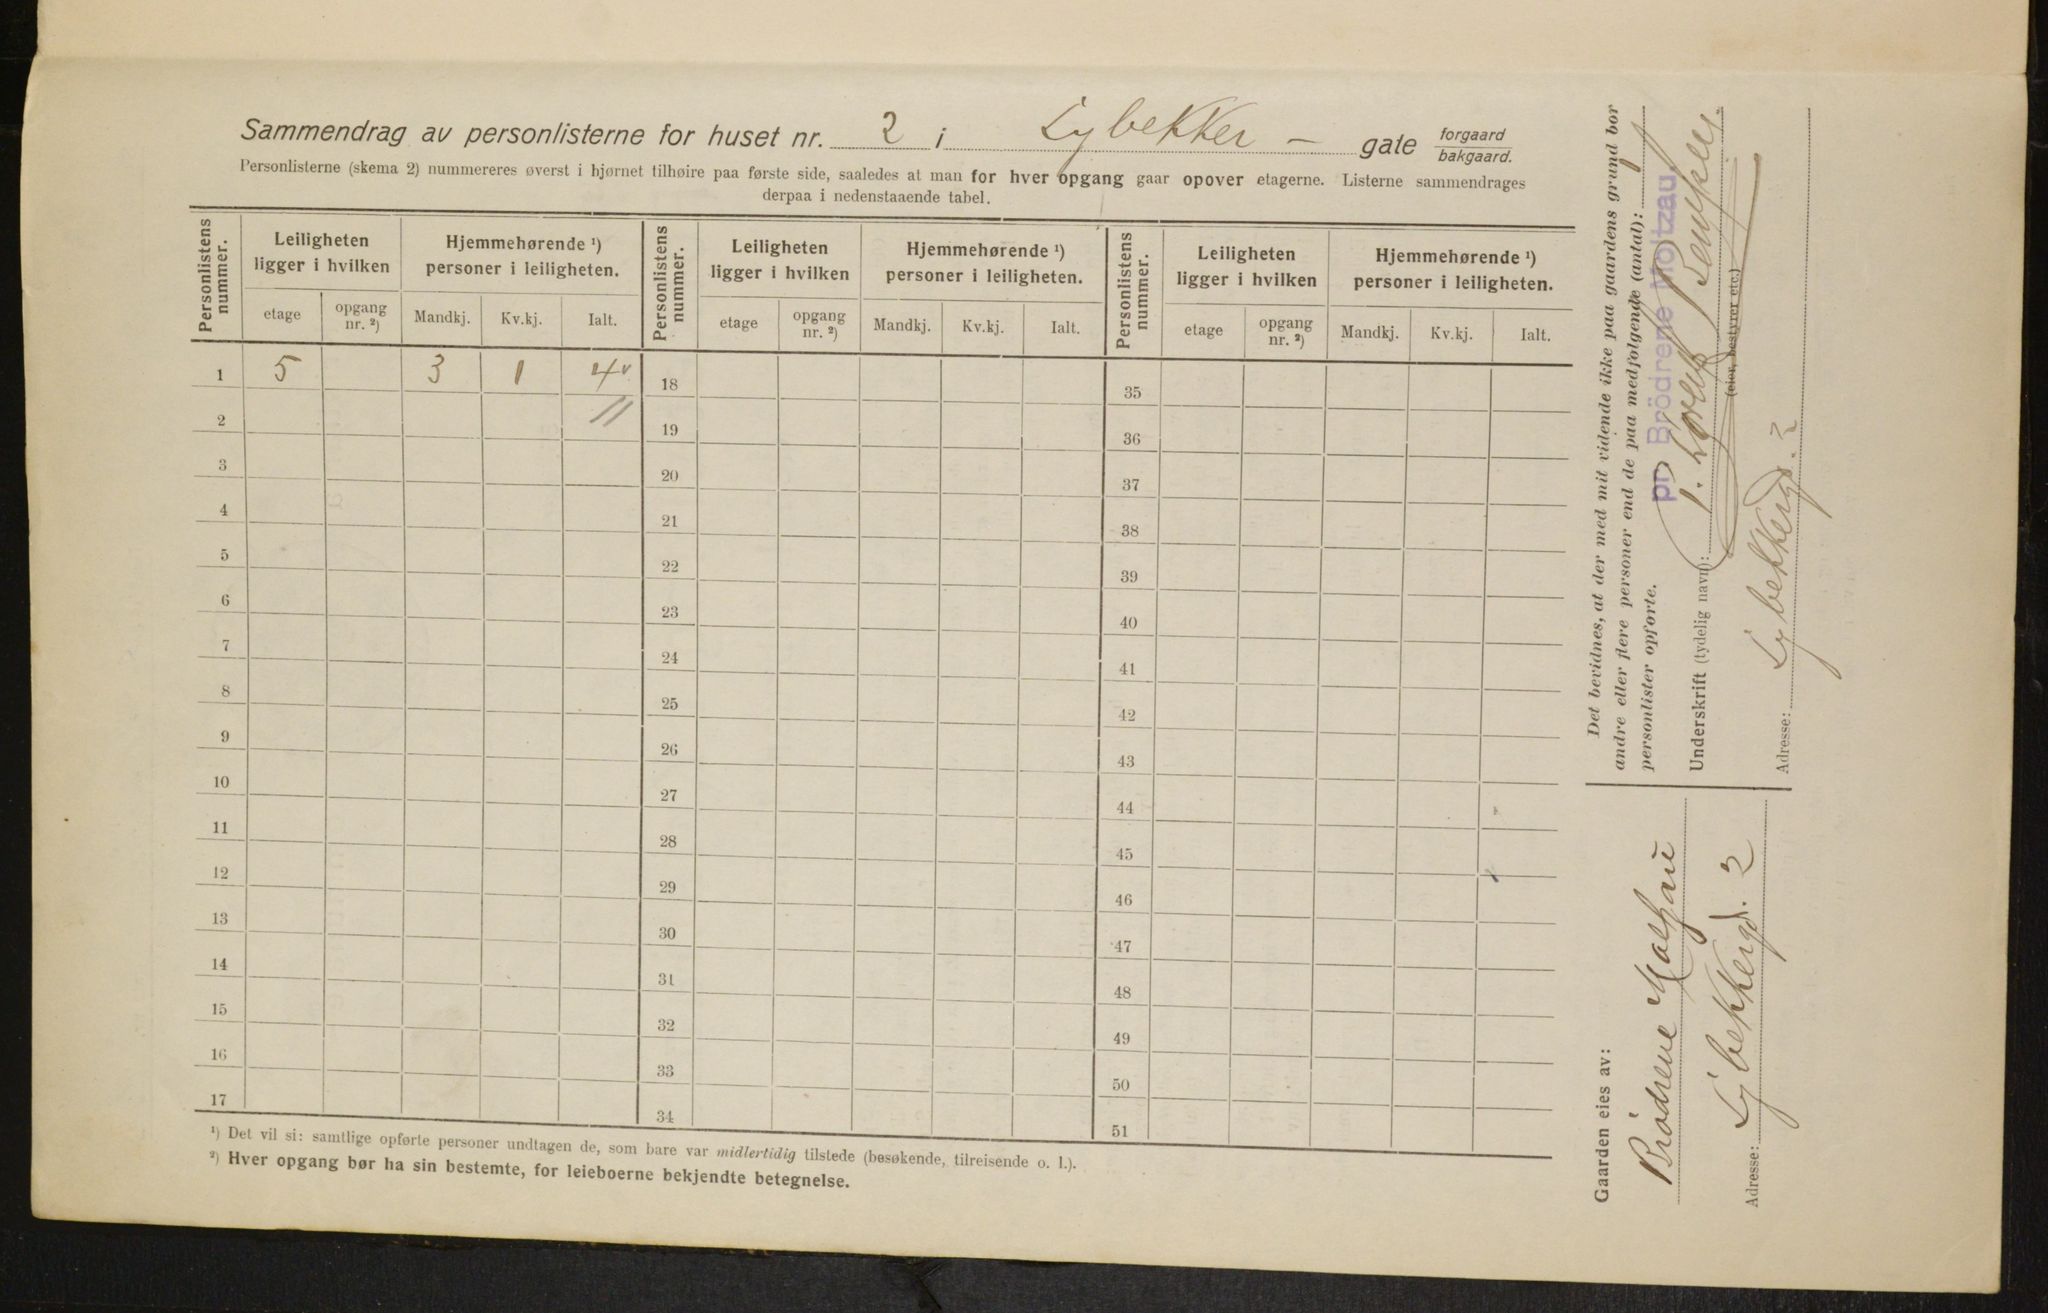 Sammendrag av personlisterne for huset nr. 2 i Lybekker – gate forgaard bakgaard.
Personlisterne (skema 2) nummereres øverst i hjørnet tilhøire paa første side, saaledes at man for hver opgang gaar opover etagerne. Listerne sammendrages
derpaa i nedenstaaende tabel.
Personlistens nummer. Leiligheten ligger i hvilken Hjemmehørende ¹) personer i leiligheten. Personlistens nummer. Leiligheten ligger i hvilken Hjemmehørende ¹) personer i leiligheten. Personlistens nummer. Leiligheten ligger i hvilken Hjemmehørende ¹) personer i leiligheten.
etage opgang nr. ²) Mandkj. Kv.kj. Ialt. etage opgang nr. ²) Mandkj. Kv.kj. Ialt. etage opgang nr. ²) Mandkj. Kv.kj. Ialt.
1 5 3 1 4 18 35
2 19 36
3 20 37
4 21 38
5 22 39
6 23 40
7 24 41
8 25 42
9 26 43
10 27 44
11 28 45
12 29 46
13 30 47
14 31 48
15 32 49
16 33 50
17 34 51
¹) Det vil si: samtlige opførte personer undtagen de, som bare var midlertidig tilstede (besøkende, tilreisende o. l.).
²) Hver opgang bør ha sin bestemte, for leieboerne bekjendte betegnelse.
Det bevidnes, at der med mit vidende ikke paa gaardens grund bor
andre eller flere personer end de paa medfølgende (antal): 1
personlister opførte.
pr. Brödrene Moltzau
Underskrift (tydelig navn):
(eier, bestyrer etc.)
Adresse: Lybekkergd. 2
Gaarden eies av:
Brödrene Moltzau
Adresse: Lybekkergd. 2